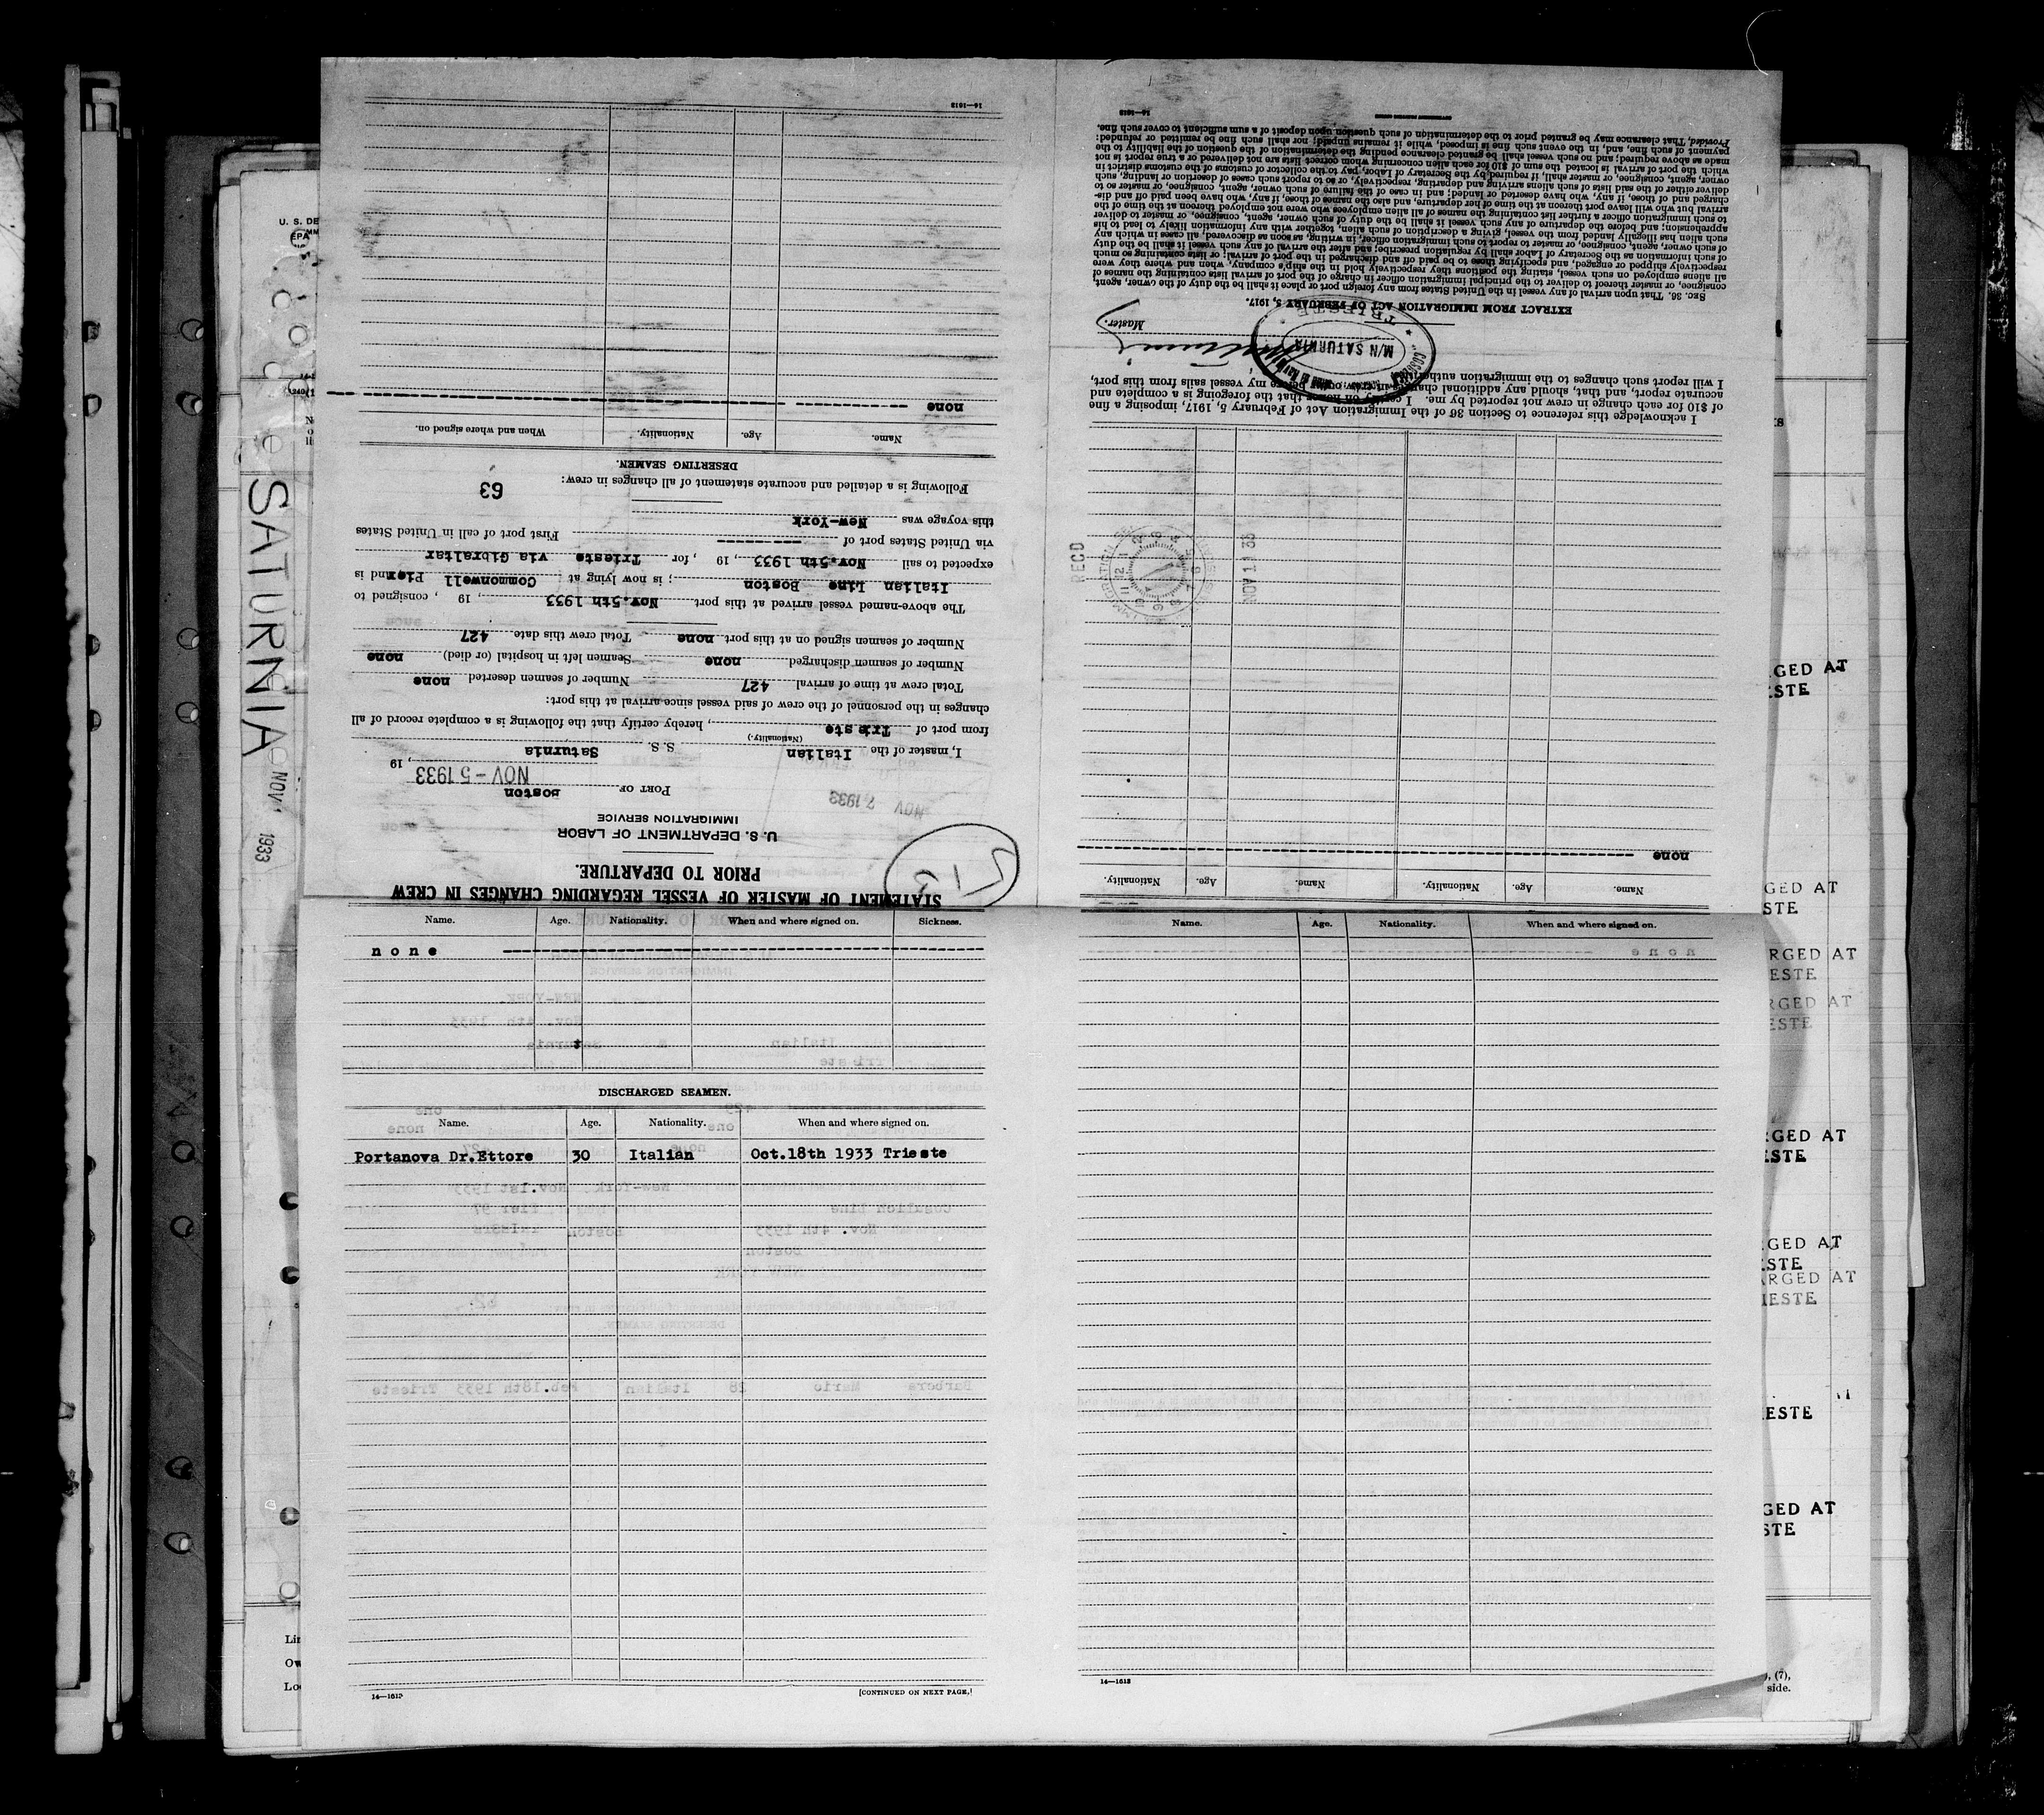 STATEMENT OF MASTER OF VESSEL REGARDING CHANGES IN CREW
PRIOR TO DEPARTURE.
U. S. DEPARTMENT OF LABOR
IMMIGRATION SERVICE
PORT OF Boston
NOV - 5 1933, 19
I, master of the Italian S. S. Saturnia
(Nationality.)
from port of Trieste, hereby certify that the following is a complete record of all
changes in the personnel of the crew of said vessel since arrival at this port:
Total crew at time of arrival 427 Number of seamen deserted none
Number of seamen discharged none Seamen left in hospital (or died) none
Number of seamen signed on at this port none Total crew this date 427
The above-named vessel arrived at this port Nov.5th 1933, 19 , consigned to
Italian Line Boston ; is now lying at Commonwell Pier and is
expected to sail Nov.5th 1933, 19 , for Trieste via Gibraltar
via United States port of --------- First port of call in United States
this voyage was New-York
Following is a detailed and accurate statement of all changes in crew:
63
DESERTING SEAMEN.
Name. Age. Nationality. When and where signed on.
none
14—1613
Name. Age. Nationality. Name. Age. Nationality.
none
REC'D
NOV 1 33
I acknowledge this reference to Section 36 of the Immigration Act of February 5, 1917, imposing a fine
of $10 for each change in crew not reported by me. I certify on honor that the foregoing is a complete and
accurate report, and that, should any additional changes in crew occur before my vessel sails from this port,
I will report such changes to the immigration authorities.
M/N SATURNIA
TRIESTE
Master.
EXTRACT FROM IMMIGRATION ACT OF FEBRUARY 5, 1917.
SEC. 36. That upon arrival of any vessel in the United States from any foreign port or place it shall be the duty of the owner, agent,
consignee, or master thereof to deliver to the principal immigration officer in charge of the port of arrival lists containing the names of
all aliens employed on such vessel, stating the positions they respectively hold in the ship's company, when and where they were
respectively shipped or engaged, and specifying those to be paid off and discharged in the port of arrival; or lists containing so much
of such information as the Secretary of Labor shall by regulation prescribe; and after the arrival of any such vessel it shall be the duty
of such owner, agent, consignee, or master to report to such immigration officer, in writing, as soon as discovered, all cases in which any
such alien has illegally landed from the vessel, giving a description of such alien, together with any information likely to lead to his
apprehension; and before the departure of any such vessel it shall be the duty of such owner, agent, consignee, or master to deliver
to such immigration officer a further list containing the names of all alien employees who were not employed thereon at the time of the
arrival but who will leave port thereon at the time of her departure, and also the names of those, if any, who have been paid off and dis-
charged and of those, if any, who have deserted or landed; and in case of the failure of such owner, agent, consignee, or master so to
deliver either of the said lists of such aliens arriving and departing, respectively, or so to report such cases of desertion or landing, such
owner, agent, consignee, or master, shall, if required by the Secretary of Labor, pay to the collector of customs of the customs district in
which the port of arrival is located the sum of $10 for each alien concerning whom correct lists are not delivered or a true report is not
made as above required; and no such vessel shall be granted clearance pending the determination of the question of the liability to the
payment of such fine, and, in the event such fine is imposed, while it remains unpaid; nor shall such fine be remitted or refunded:
Provided, That clearance may be granted prior to the determination of such question upon deposit of a sum sufficient to cover such fine.
14—1613
SATURNIA
NOV 1 1933
Name. Age. Nationality. When and where signed on. Sickness.
none
DISCHARGED SEAMEN.
Name. Age. Nationality. When and where signed on.
Portanova Dr.Ettore 30 Italian Oct.18th 1933 Trieste
14—1613 [CONTINUED ON NEXT PAGE.]
Name. Age. Nationality. When and where signed on.
14—1613
RGED AT
ESTE
side.